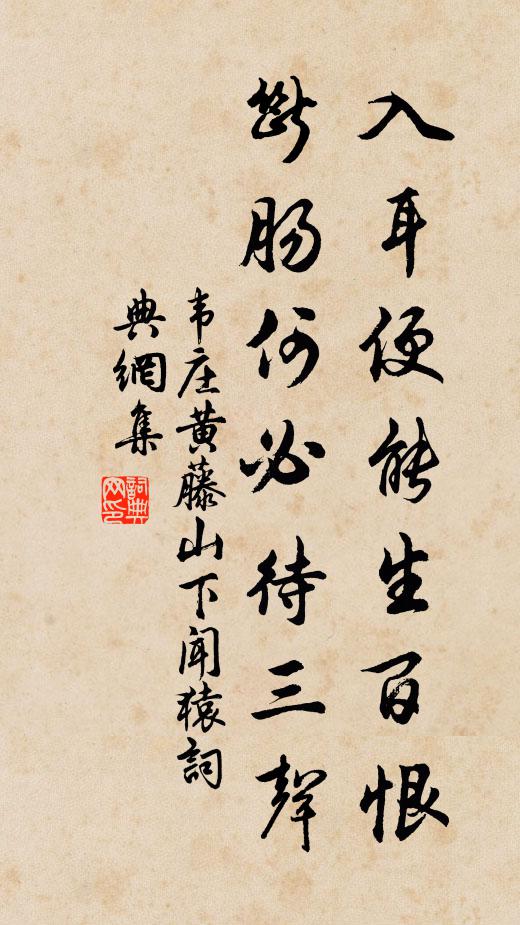 入耳便能生百恨
斷肠何必待三聲
韦庄黄藤山下闻猿詞
典網集
詞典网印